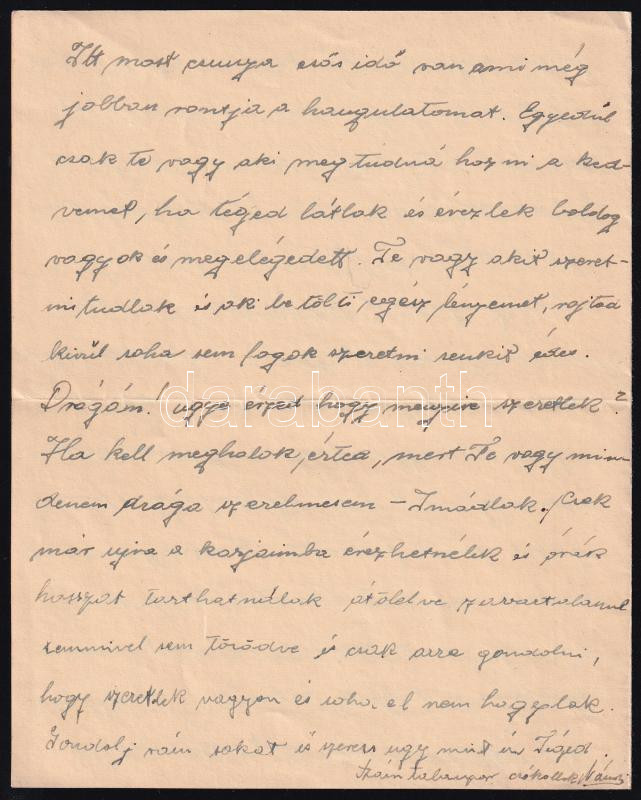 Itt most csunya esős idő van ami még
jobban rontja a hangulatomat. Egyedül
csak te vagy aki megtudná hozni a ked-
vemet, ha téged látlak és érezlek boldog
vagyok és megelégedett. Te vagy akit szeret-
ni tudlak és aki betölti egész lényemet, rajtad
kivül soha sem fogok szeretni senkit édes.
Drágám! ugye érzed hogy mennyire szeretlek?
Ha kell meghalok, érted, mert Te vagy min-
denem drága szerelmesem – Imádlak. Csak
már ujra a karjaimba érezhetnélek és órák
hosszat tarthatnálak átölelve zavartalanul
semmivel sem törődve és csak arra gondolni,
hogy szeretlek nagyon és soha el nem hagylak.
Gondolj rám sokat és szeress ugy mint én Téged.
csókollak
darabanth